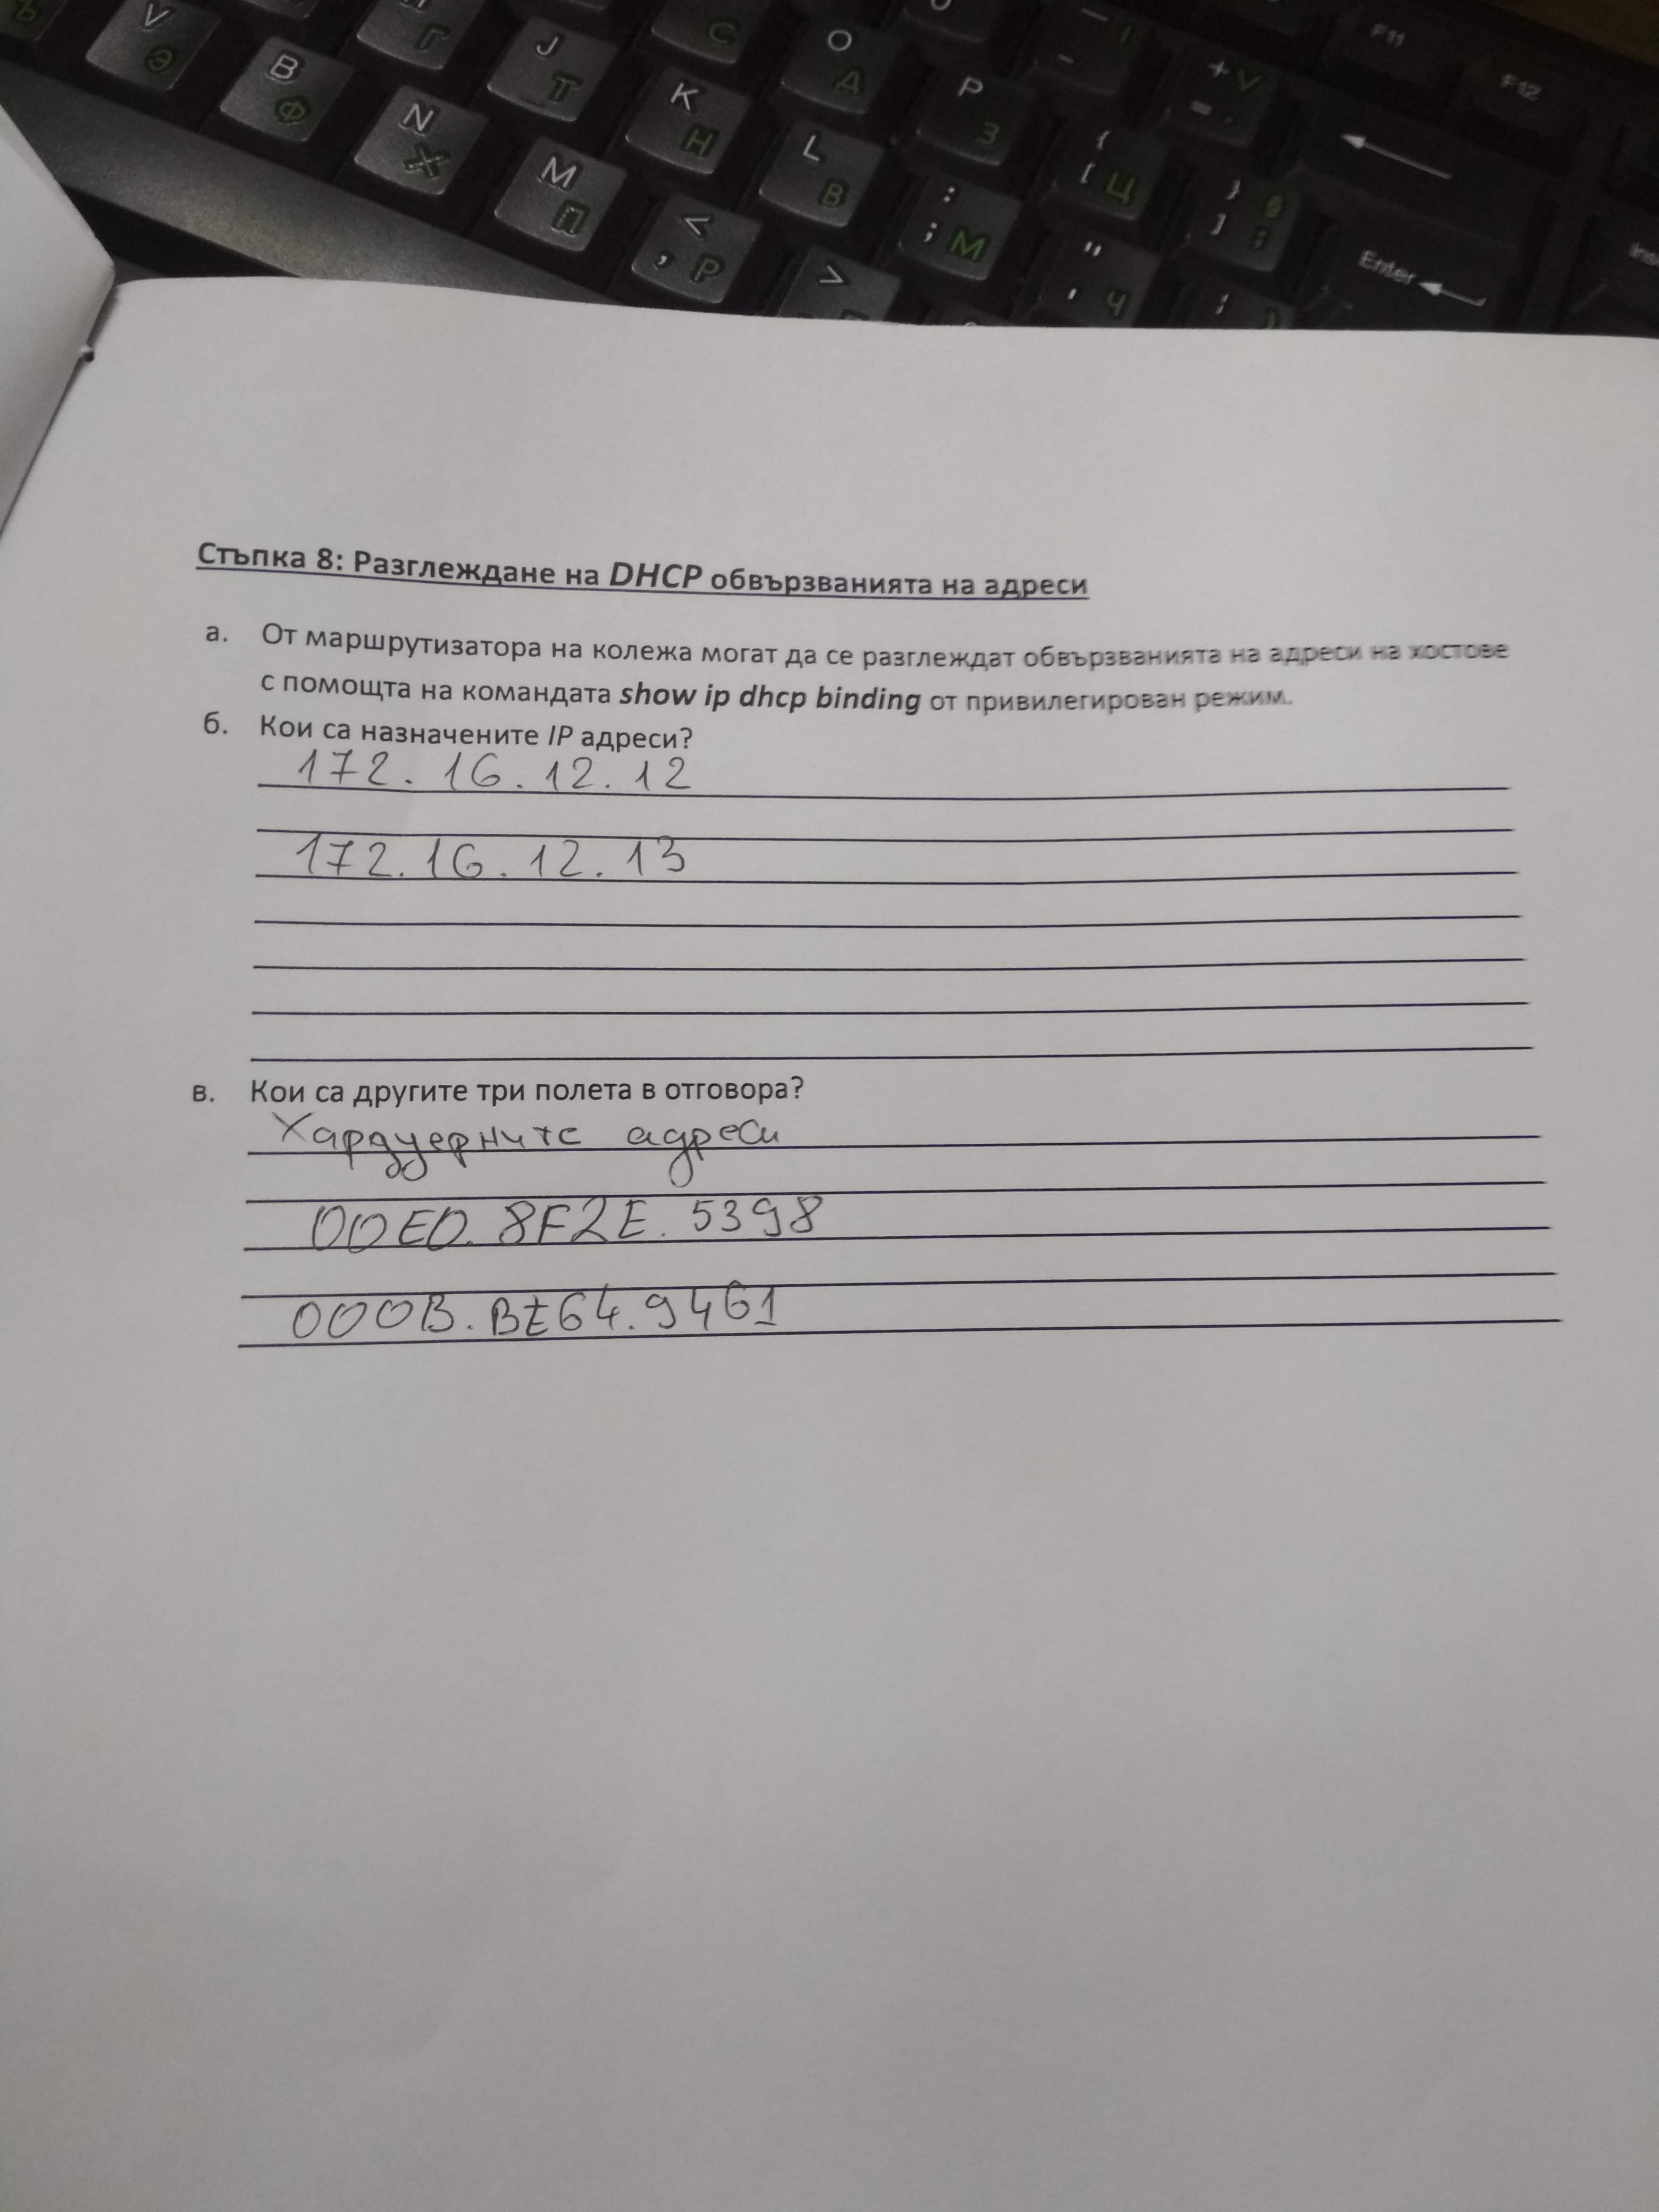 V Э
B Ф
N Х
J Т
M П
K Н
< , Р
O Д
L В
>
P З
: ; М
{ [ Ц
" ' Ч
+ = V
} ] §
F11
F12
Enter
Ins
Стъпка 8: Разглеждане на DHCP обвързванията на адреси
а. От маршрутизатора на колежа могат да се разглеждат обвързванията на адреси на хостове
с помощта на командата show ip dhcp binding от привилегирован режим.
б. Кои са назначените IP адреси?
172.16.12.12
172.16.12.13
в. Кои са другите три полета в отговора?
Хардуерните адреси
00ED.8F2E.5398
000B.BE64.9461